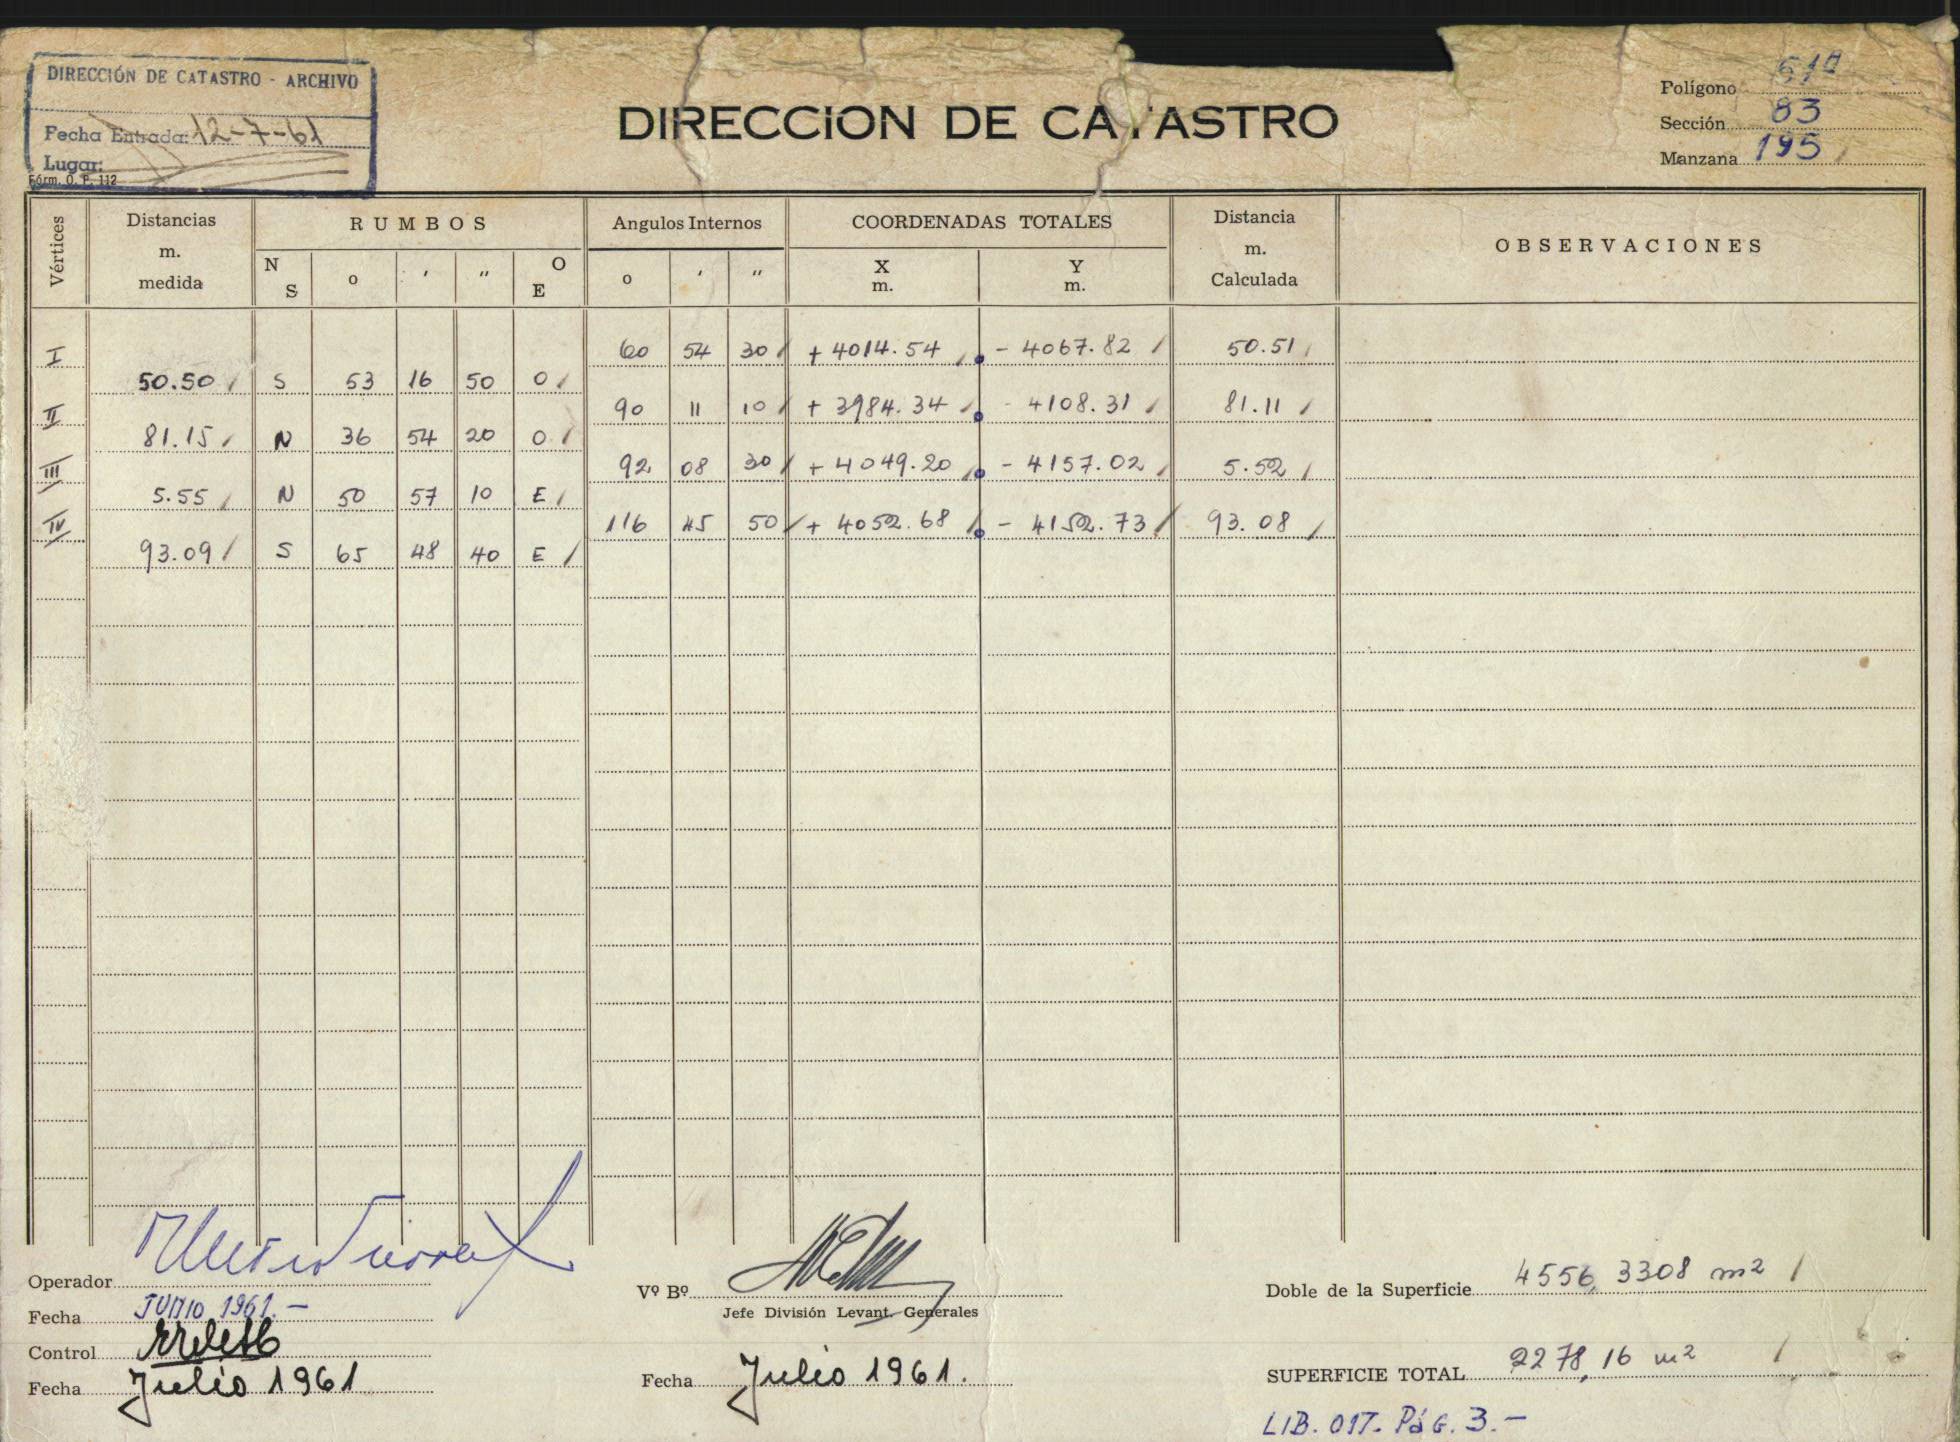 DIRECCIÓN DE CATASTRO - ARCHIVO
Fecha Entrada: 12-7-61
Lugar:
Fórm. O. P. 112
DIRECCION DE CATASTRO
Polígono
Sección 83
Manzana 195
Vértices
Distancias m. medida
RUMBOS
N S o ′ ″ O E
Angulos Internos
o ′ ″
COORDENADAS TOTALES
X m. Y m.
Distancia m. Calculada
OBSERVACIONES
I 60 54 30 + 4014.54 - 4067.82 50.51
50.50 S 53 16 50 O
II 90 11 10 + 3984.34 - 4108.31 81.11
81.15 N 36 54 20 O
III 92 08 30 + 4049.20 - 4157.02 5.52
5.55 N 50 57 10 E
IV 116 45 50 + 4052.68 - 4152.73 93.08
93.09 S 65 48 40 E
Operador
Fecha JUNIO 1961.-
Control
Fecha Julio 1961
Vº Bº
Jefe División Levant. Generales
Fecha Julio 1961.
Doble de la Superficie 4556,3308 m2
SUPERFICIE TOTAL 2278,16 m2
LIB. 017. PÁG. 3.-